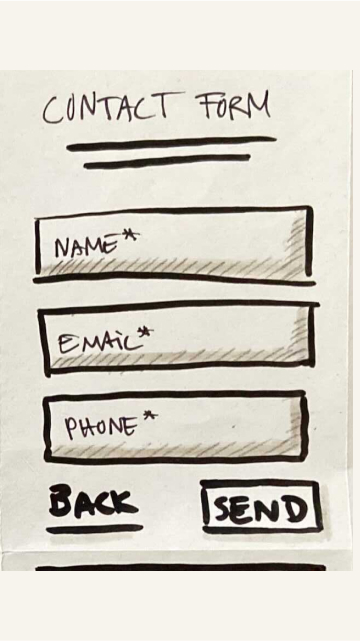 CONTACT FORM
NAME*
EMAIL*
PHONE*
BACK SEND